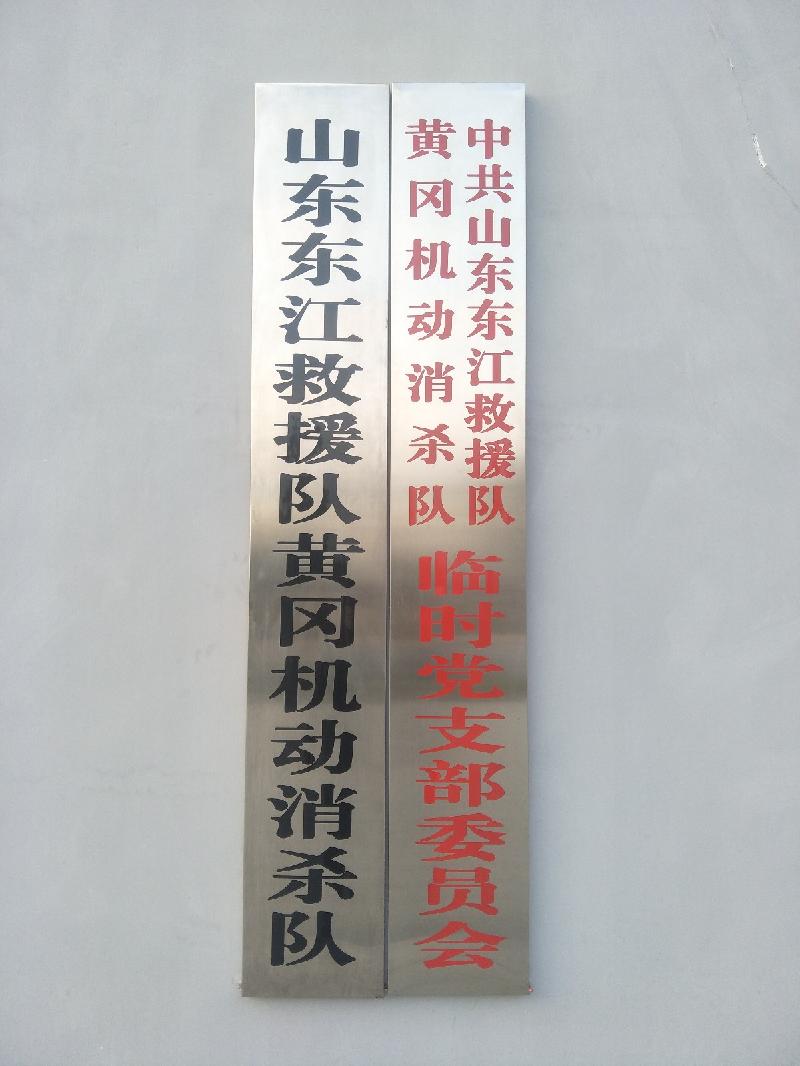 山东东江救援队黄冈机动消杀队
中共山东东江救援队
黄冈机动消杀队
临时党支部委员会